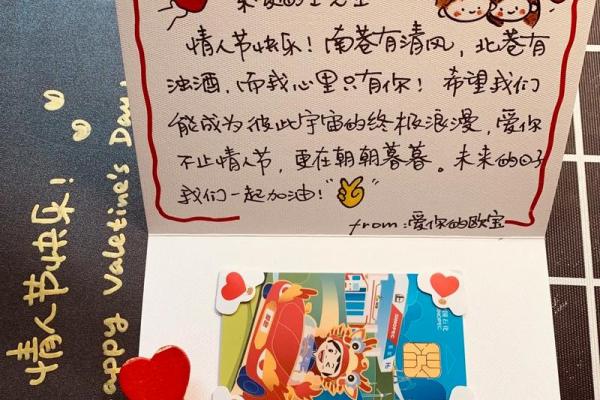 情人节快乐！南巷有清风，北巷有
浊酒，而我心里只有你！希望我们
能成为彼此宇宙的终极浪漫，爱你
不止情人节，更在朝朝暮暮。未来的日子
我们一起加油！
from：爱你的欧宝
情人节快乐！
appy Valetine's Day
中国石化
SINOPEC